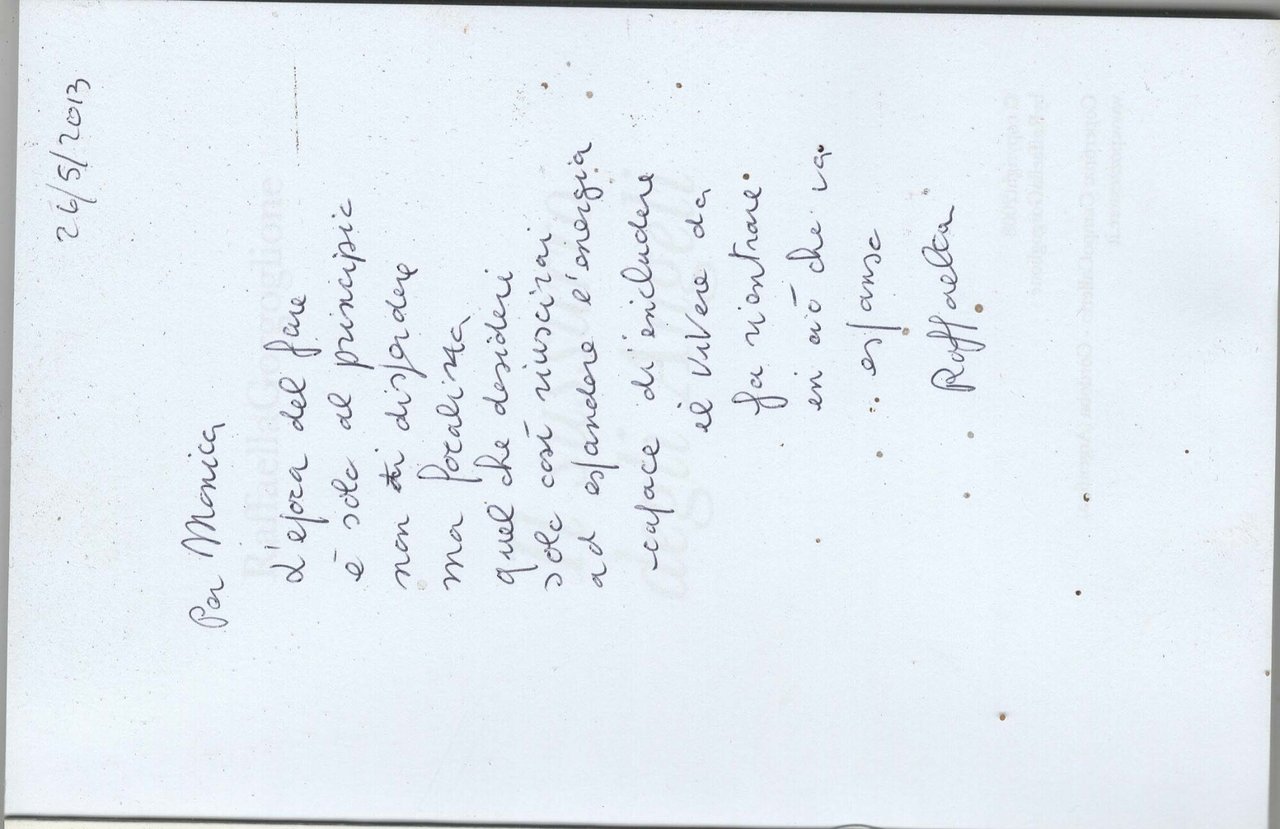 26/5/2013
Per Monica
L'epoca del fare
è solo al principio
non ti disperdere
ma focalizza
quel che desideri
solo così riuscirai
ad espandere l'energia
capace di includere
il vivere da
fa rientrare
in ciò che va
espanso
Raffaella